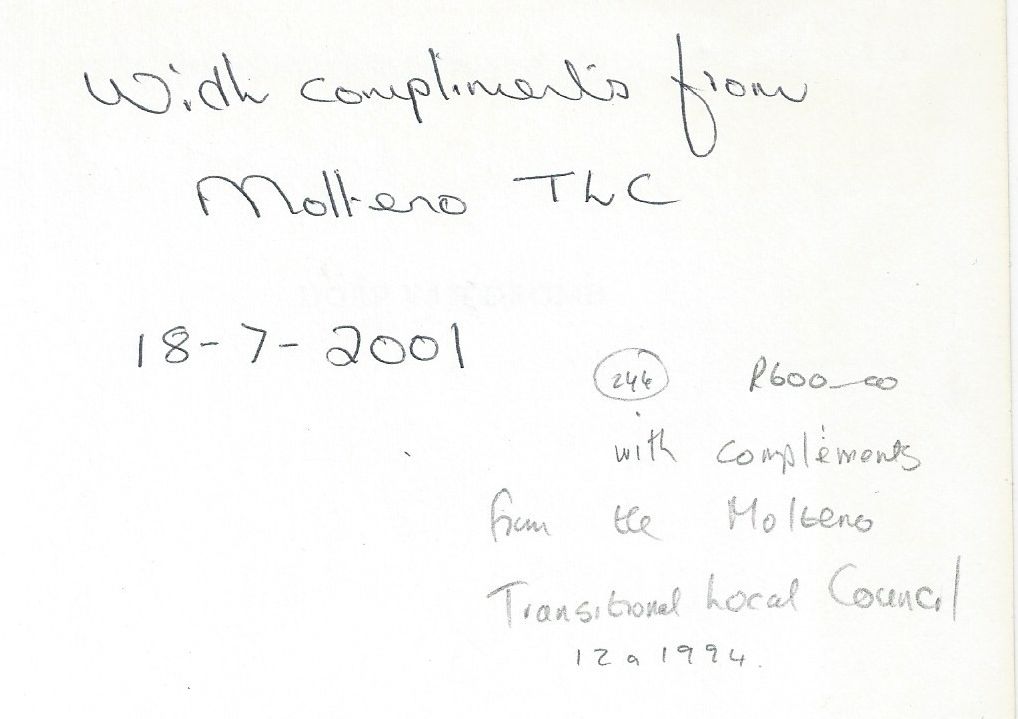 With compliments from
Molteno TLC
18-7-2001
244 R600-00
with compliments
from the Molteno
Transitional Local Council
12a 1994.